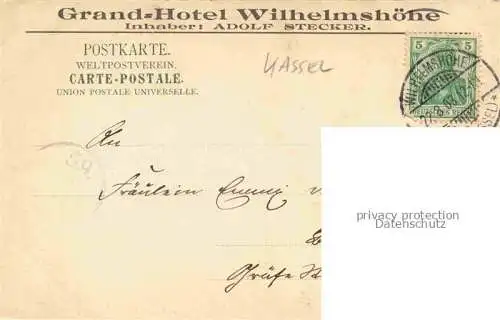 Grand-Hotel Wilhelmshöhe
Inhaber: ADOLF STECKER.
POSTKARTE.
WELTPOSTVEREIN.
CARTE-POSTALE.
UNION POSTALE UNIVERSELLE.
KASSEL
5 5
WILHELMSHÖHE
An
Fräulein Emmy v
Gräfe St
privacy protection
Datenschutz